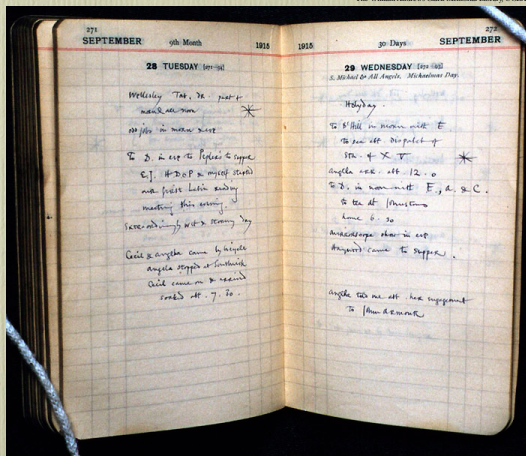 271
SEPTEMBER 9th Month 1915
28 TUESDAY [271-94]
Wellesley Tat,
odd jobs in morn & evg
To D. in evg to Peplers to supper
E.J. H D C P & myself started
with first Latin reading
meeting this evening.
Extraordinarily wet & stormy day
Cecil & Angela came by bicycle
Angela stopped at Southwick
Cecil came on & arrived
soaked at 7.30.
272
1915 30 Days SEPTEMBER
29 WEDNESDAY [272-93]
S. Michael & All Angels. Michaelmas Day.
Holyday.
To B'Hill in morn with E.
to see abt. dispatch of
Stn. of X V
Angela arr. abt. 12.0
To D. in noon with E., A. & C.
to tea at Johnstons
home 6.30
in evg.
came to supper.
Angela told me abt. her engagement
to